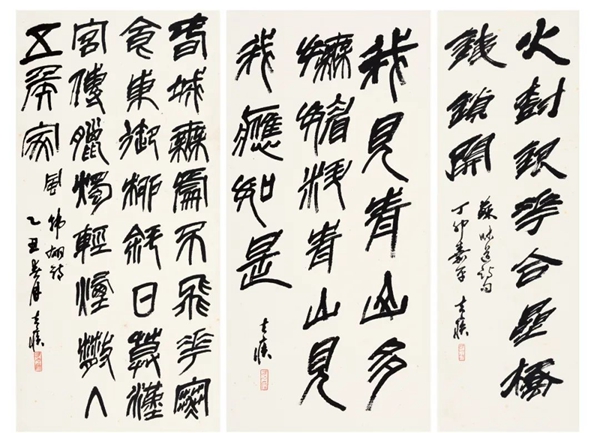 火樹銀花合星橋
鐵鎖開
蘇味道詩句
丁卯嘉平
我見青山多
嫵媚料青山見
我應如是
春城無處不飛花寒
食東御柳斜日暮漢
宮傳蠟燭輕煙散入
五侯家
風 韓翃詩
乙丑 月